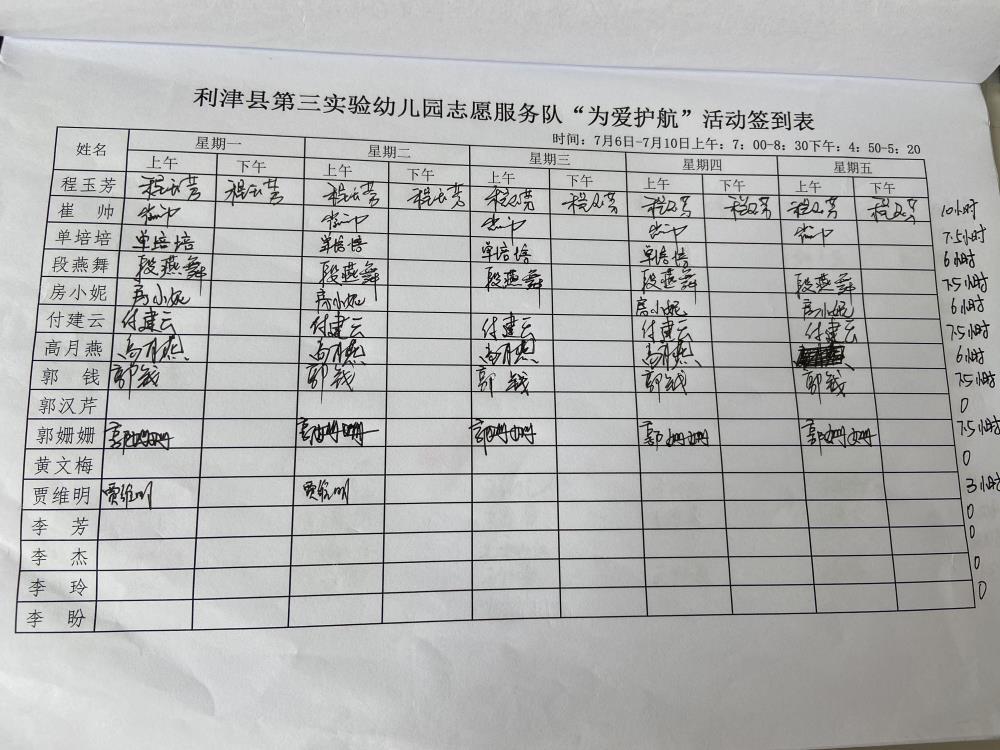 利津县第三实验幼儿园志愿服务队“为爱护航”活动签到表
时间：7月6日-7月10日上午：7：00-8：30下午：4：50-5：20
姓名 星期一 星期二 星期三 星期四 星期五
上午 下午 上午 下午 上午 下午 上午 下午 上午 下午
程玉芳 程玉芳 程玉芳 程玉芳 程玉芳 程玉芳 程玉芳 程玉芳 程玉芳 程玉芳 程玉芳 10小时
崔 帅 崔帅 崔帅 崔帅 崔帅 崔帅 7.5小时
单培培 单培培 单培培 单培培 单培培 6小时
段燕舞 段燕舞 段燕舞 段燕舞 段燕舞 段燕舞 7.5小时
房小妮 房小妮 房小妮 房小妮 房小妮 6小时
付建云 付建云 付建云 付建云 付建云 付建云 7.5小时
高月燕 高月燕 高月燕 高月燕 高月燕 6小时
郭 钱 郭钱 郭钱 郭钱 郭钱 郭钱 7.5小时
郭汉芹 0
郭姗姗 郭姗姗 郭姗姗 郭姗姗 郭姗姗 郭姗姗 7.5小时
黄文梅 0
贾维明 贾维明 贾维明 3小时
李 芳 0
李 杰 0
李 玲 0
李 盼 0